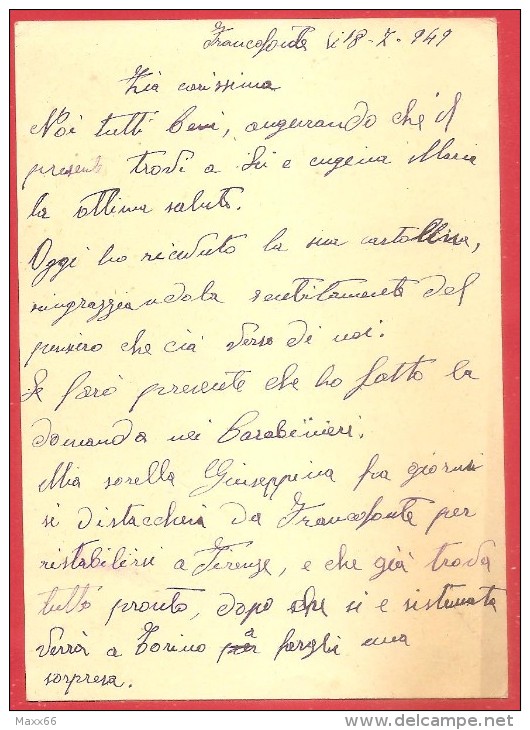 Francofonte li 18-7-949
Zia carissima
Noi tutti beni, augurando che il
presente trovi a Lei e cugina Maria
la ottima salute.
Oggi ho ricevuto la sua cartolina,
ringrazziandola sentitamente del
pensiero che cià verso di noi.
Le farò presente che ho fatto la
domanda nei Carabinieri.
Mia sorella Giuseppina fra giorni
si distaccherà da Francofonte per
ristabilirsi a Firenze, e che già trova
tutto pronto, dopo che si e sistemata
verrà a Torino a fargli una
sorpresa.
Maxx66
www.delcampe.net